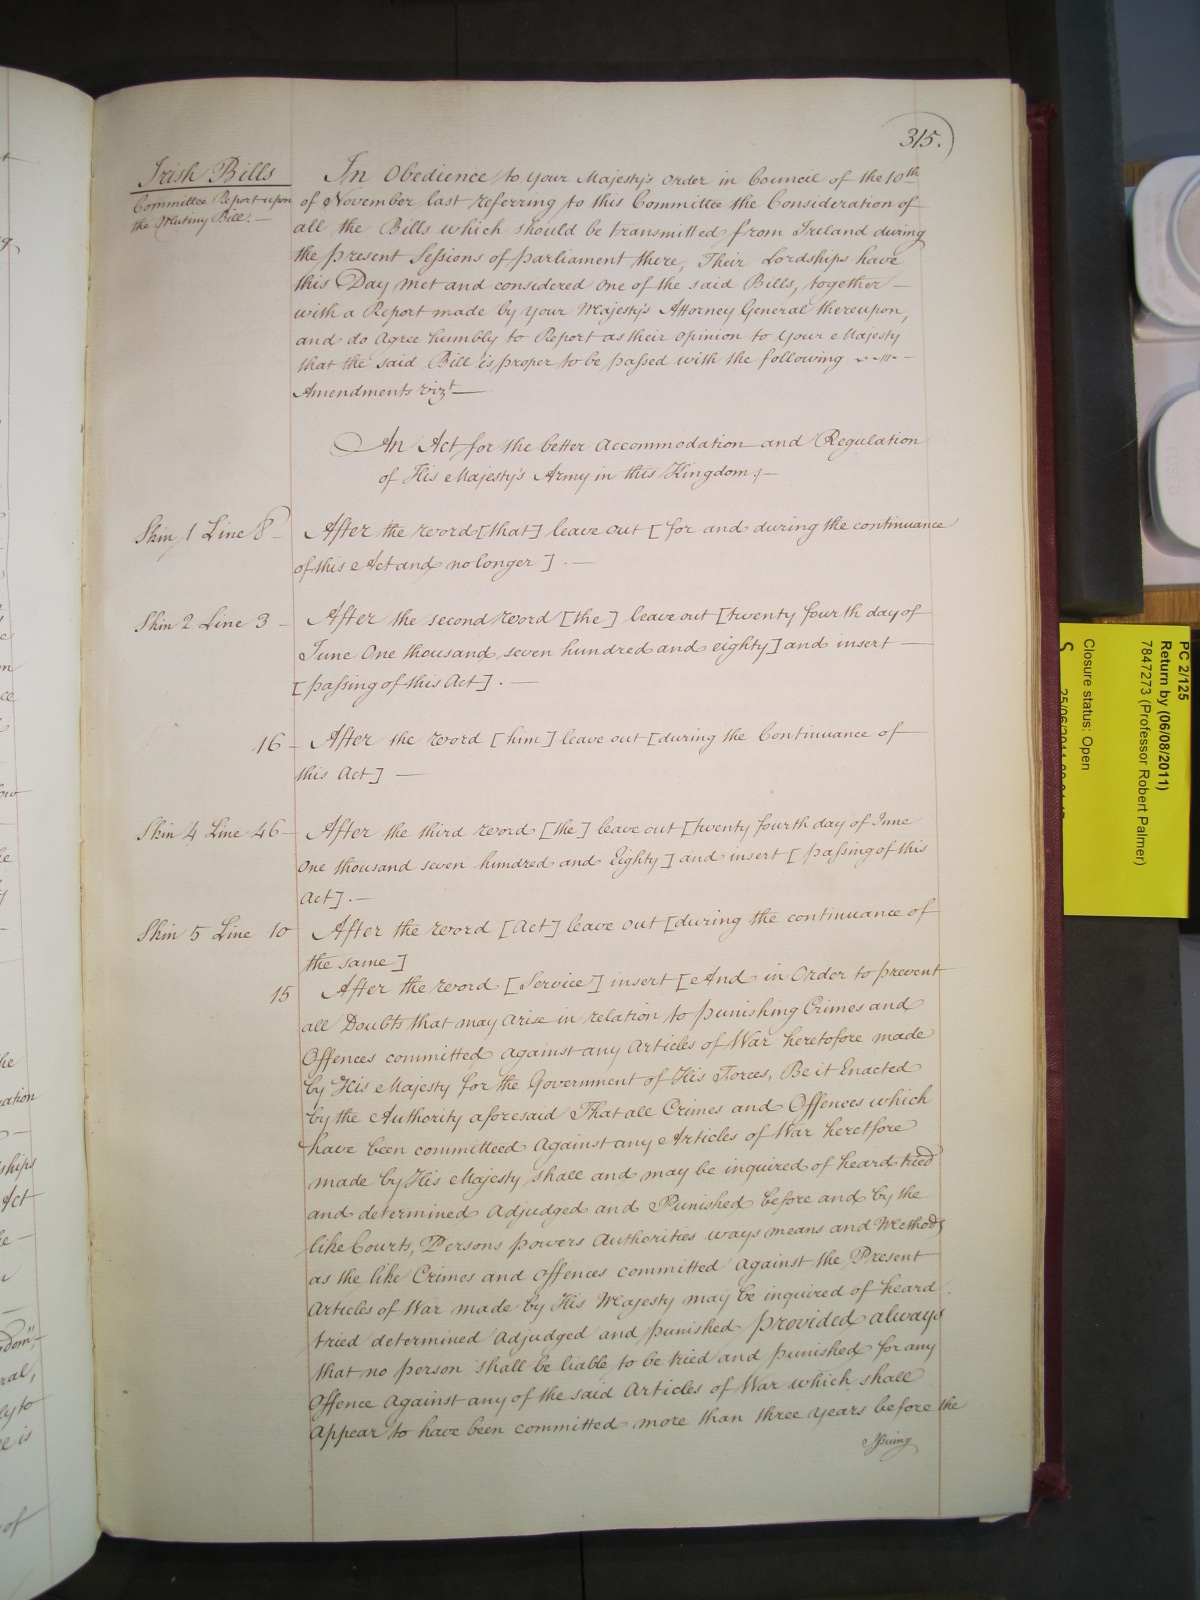 315.
Irish Bills
Committee Report upon
the Mutiny Bill. —
In Obedience to Your Majesty's Order in Council of the 10th
of November last referring to this Committee the Consideration of
all the Bills which should be transmitted from Ireland during
the present Sessions of Parliament there, Their Lordships have
this Day met and considered one of the said Bills, together —
with a Report made by Your Majesty's Attorney General thereupon,
and do agree humbly to Report as their opinion to Your Majesty
that the said Bill is proper to be passed with the following
Amendments vizt —
An Act for the better Accommodation and Regulation
of His Majesty's Army in this Kingdom; —
Skin 1 Line 8 — After the word [that] leave out [for and during the continuance
of this Act and no longer]. —
Skin 2 Line 3 — After the second word [the] leave out [twenty fourth day of
June One thousand seven hundred and eighty] and insert —
[passing of this Act]. —
16 — After the word [him] leave out [during the Continuance of
this Act] —
Skin 4 Line 46 — After the third word [the] leave out [twenty fourth day of June
One thousand seven hundred and Eighty] and insert [passing of this
Act]. —
Skin 5 Line 10 After the word [Act] leave out [during the continuance of
the same]
15 After the word [Service] insert [And in Order to prevent
all Doubts that may arise in relation to punishing Crimes and
Offences committed against any Articles of War heretofore made
by His Majesty for the Government of His Forces, Be it Enacted
by the Authority aforesaid That all Crimes and Offences which
have been committed against any Articles of War heretfore
made by His Majesty shall and may be inquired of heard tried
and determined adjudged and Punished before and by the
like Courts, Persons powers Authorities ways means and Methods
as the like Crimes and Offences committed against the Present
Articles of War made by His Majesty may be inquired of heard
tried determined adjudged and punished provided always
that no person shall be liable to be tried and punished for any
Offence against any of the said Articles of War which shall
appear to have been committed more than three Years before the
Issuing
PC 2/125
Return by (06/08/2011)
7847273 (Professor Robert Palmer)
Closure status: Open
S